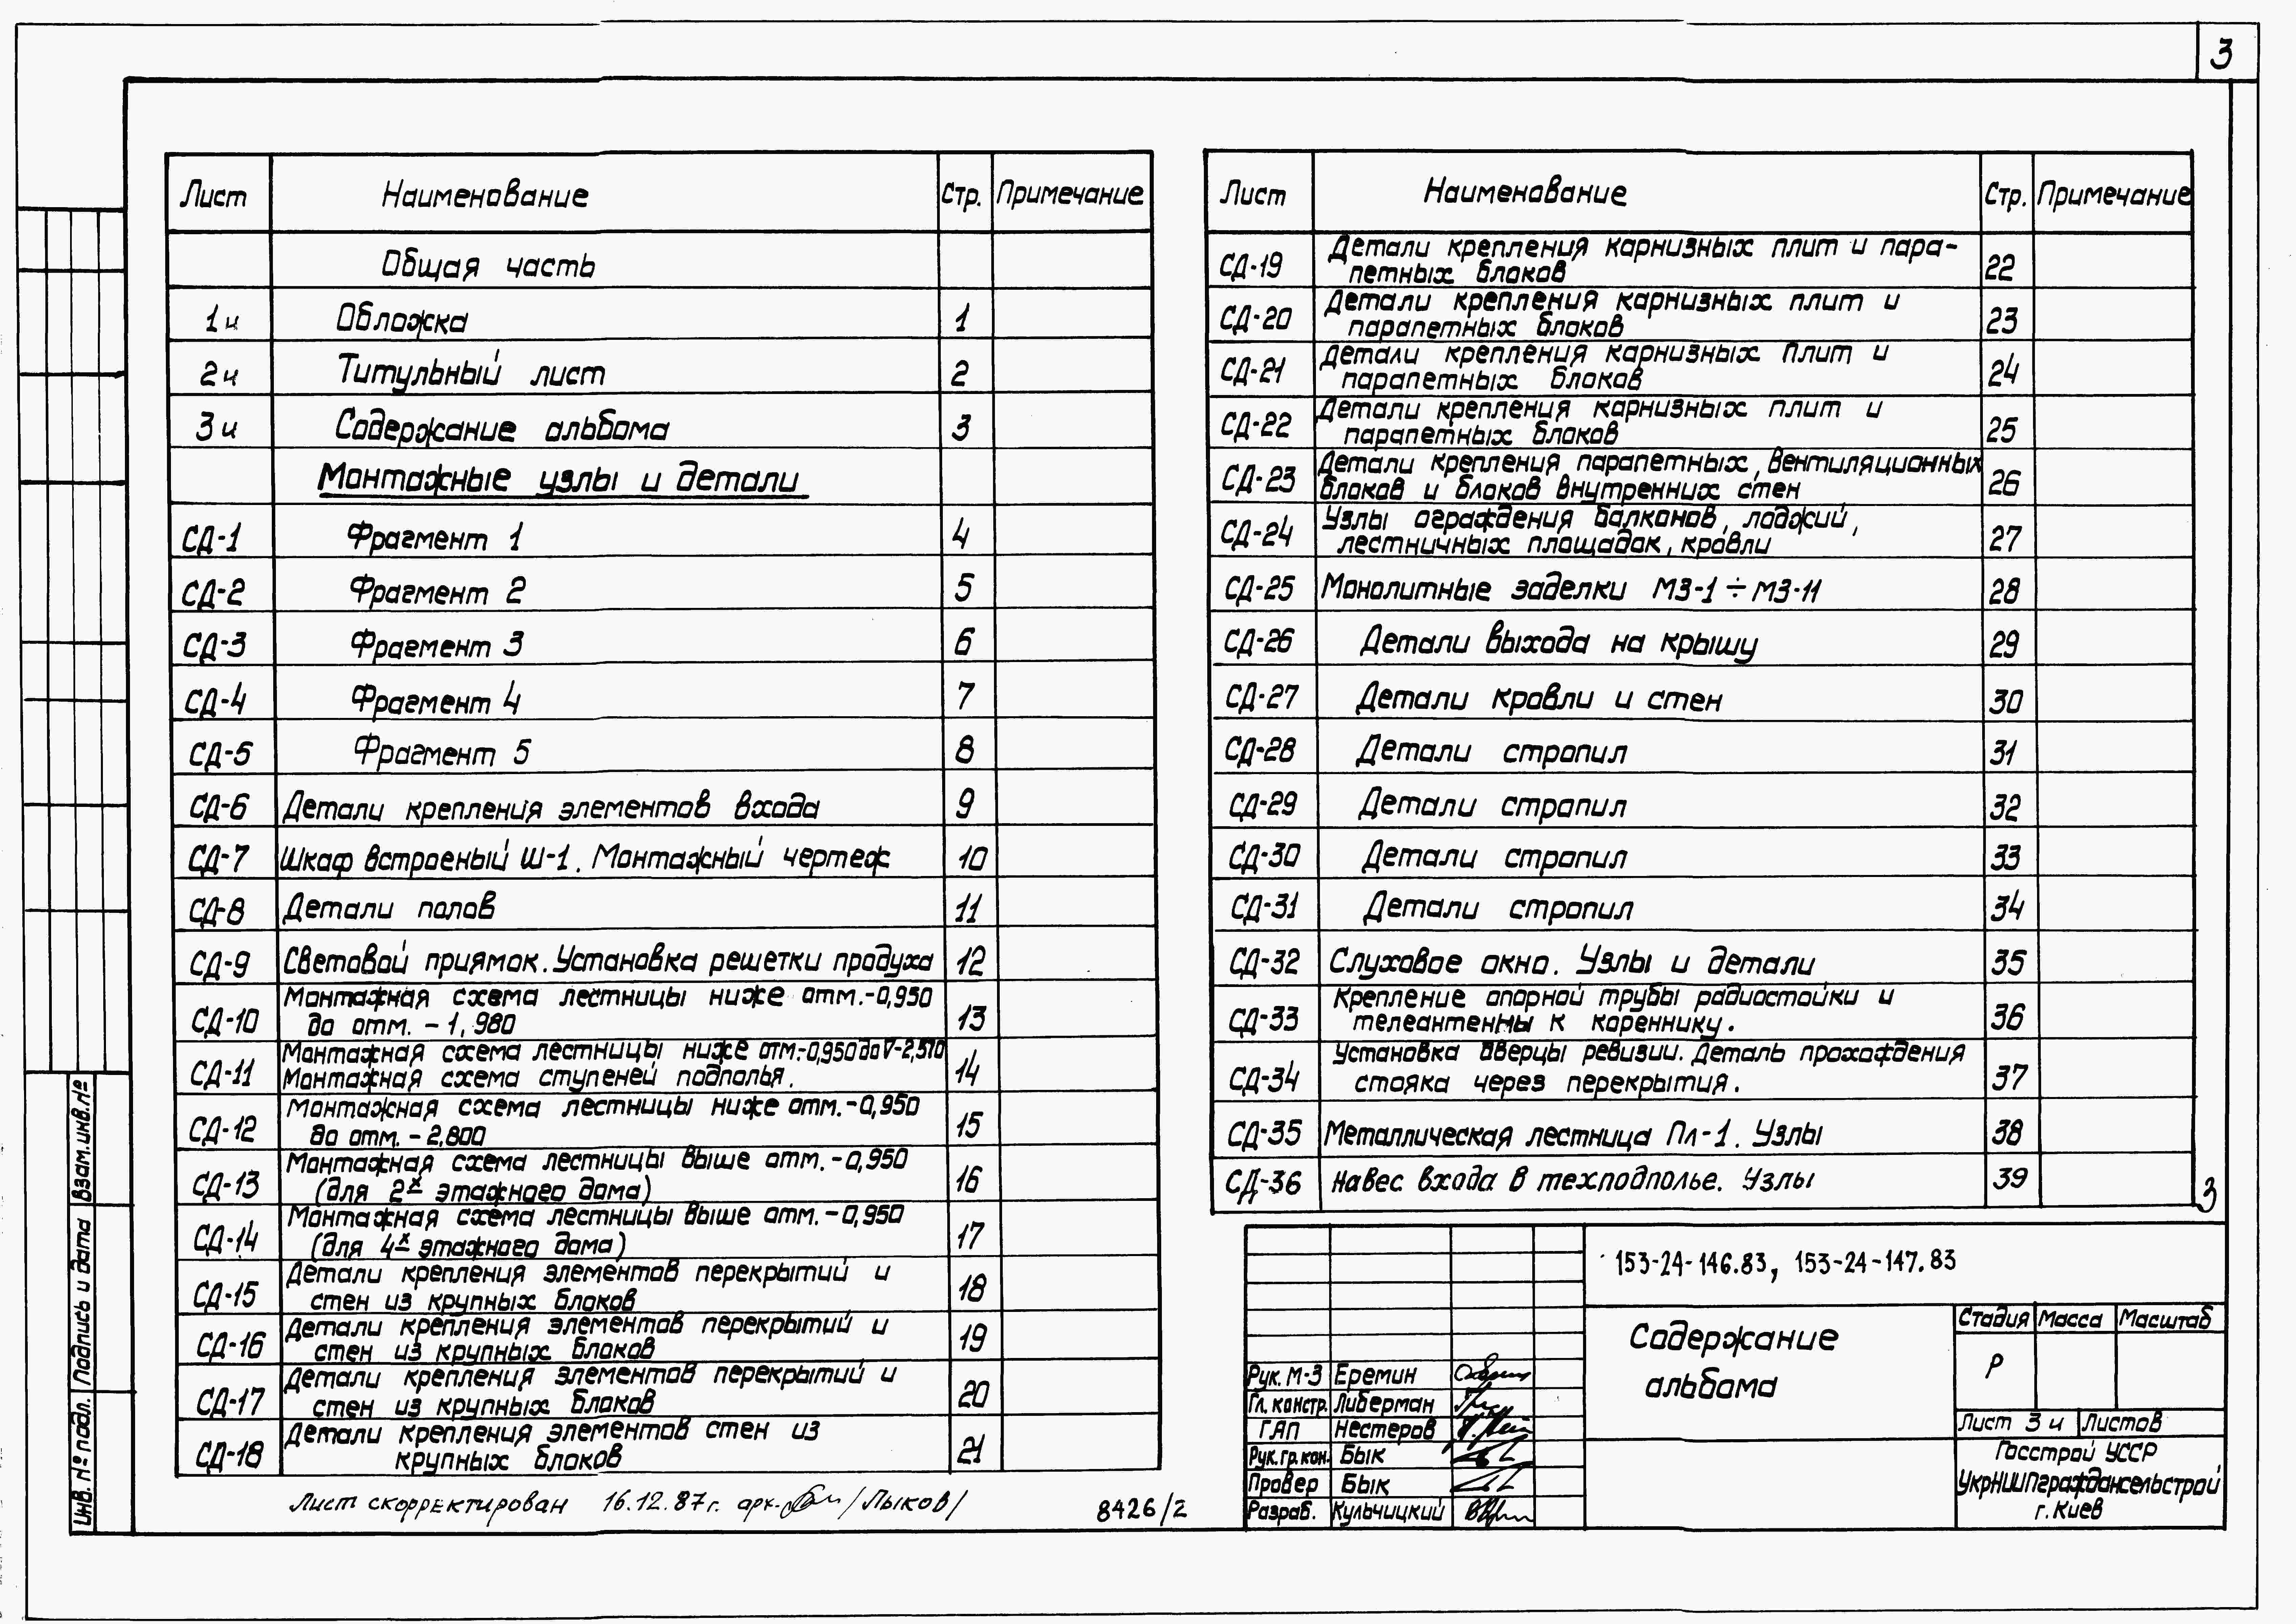 3
Лист Наименование Стр. Примечание
Общая часть
1и Обложка 1
2и Титульный лист 2
3и Содержание альбома 3
Монтажные узлы и детали
СД-1 Фрагмент 1 4
СД-2 Фрагмент 2 5
СД-3 Фрагмент 3 6
СД-4 Фрагмент 4 7
СД-5 Фрагмент 5 8
СД-6 Детали крепления элементов входа 9
СД-7 Шкаф встроеный Ш-1. Монтажный чертеж 10
СД-8 Детали полов 11
СД-9 Световой приямок. Установка решетки продуха 12
СД-10 Монтажная схема лестницы ниже отм.-0,950
до отм. -1,980 13
СД-11 Монтажная схема лестницы ниже отм.-0,950 до ∇-2,510
Монтажная схема ступеней подполья. 14
СД-12 Монтажная схема лестницы ниже отм.-0,950
до отм. -2,800 15
СД-13 Монтажная схема лестницы выше отм.-0,950
(для 2х этажного дома) 16
СД-14 Монтажная схема лестницы выше отм.-0,950
(для 4х этажного дома) 17
СД-15 Детали крепления элементов перекрытий и
стен из крупных блоков 18
СД-16 Детали крепления элементов перекрытий и
стен из крупных блоков 19
СД-17 Детали крепления элементов перекрытий и
стен из крупных блоков 20
СД-18 Детали крепления элементов стен из
крупных блоков 21
Лист Наименование Стр. Примечание
СД-19 Детали крепления карнизных плит и пара-
петных блоков 22
СД-20 Детали крепления карнизных плит и
парапетных блоков 23
СД-21 Детали крепления карнизных плит и
парапетных блоков 24
СД-22 Детали крепления карнизных плит и
парапетных блоков 25
СД-23 Детали крепления парапетных, вентиляционных
блоков и блоков внутренних стен 26
СД-24 Узлы ограждения балконов, лоджий,
лестничных площадок, кровли 27
СД-25 Монолитные заделки МЗ-1÷МЗ-11 28
СД-26 Детали выхода на крышу 29
СД-27 Детали кровли и стен 30
СД-28 Детали стропил 31
СД-29 Детали стропил 32
СД-30 Детали стропил 33
СД-31 Детали стропил 34
СД-32 Слуховое окно. Узлы и детали 35
СД-33 Крепление опорной трубы радиостойки и
телеантенны к кореннику. 36
СД-34 Установка дверцы ревизии. Деталь прохождения
стояка через перекрытия. 37
СД-35 Металлическая лестница Пл-1. Узлы 38
СД-36 Навес входа в техподполье. Узлы 39
3
153-24-146.83, 153-24-147.83
Содержание
альбома
Стадия Масса Масштаб
Р
Лист 3и Листов
Госстрой УССР
УкрНИИПгражданСельстрой
г. Киев
Рук. М-3 Еремин
Гл. констр. Либерман
ГАП Нестеров
Рук. гр. кон. Бык
Провер Бык
Разраб. Кульчицкий
Лист скорректирован 16.12.87г. арх. /Лыков/
8426/2
Взам. инв. №
Подпись и дата
Инв. № подл.